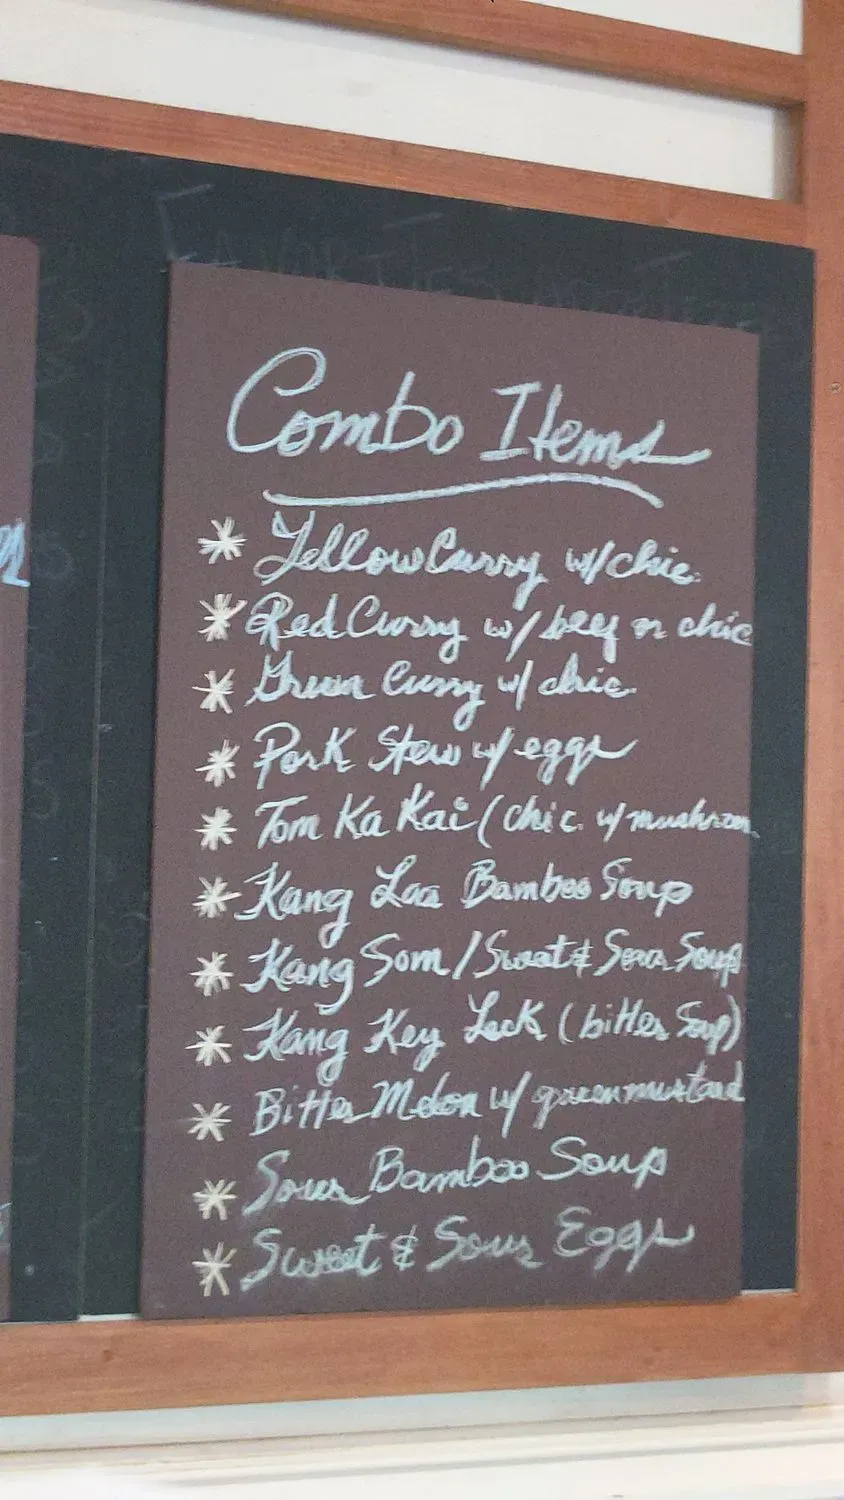 FAVORITES
Combo Items
* Yellow Curry w/ chic.
* Red Curry w/ beef or chic
* Green Curry w/ chic.
* Pork Stew w/ eggs
* Tom Ka Kai (chic. w/ mushroom
* Kang Lao Bamboo Soup
* Kang Som / Sweet & Sour Soup
* Kang Key Leck (bitter Soup)
* Bitter Melon w/ green mustard
* Sour Bamboo Soup
* Sweet & Sour Eggs